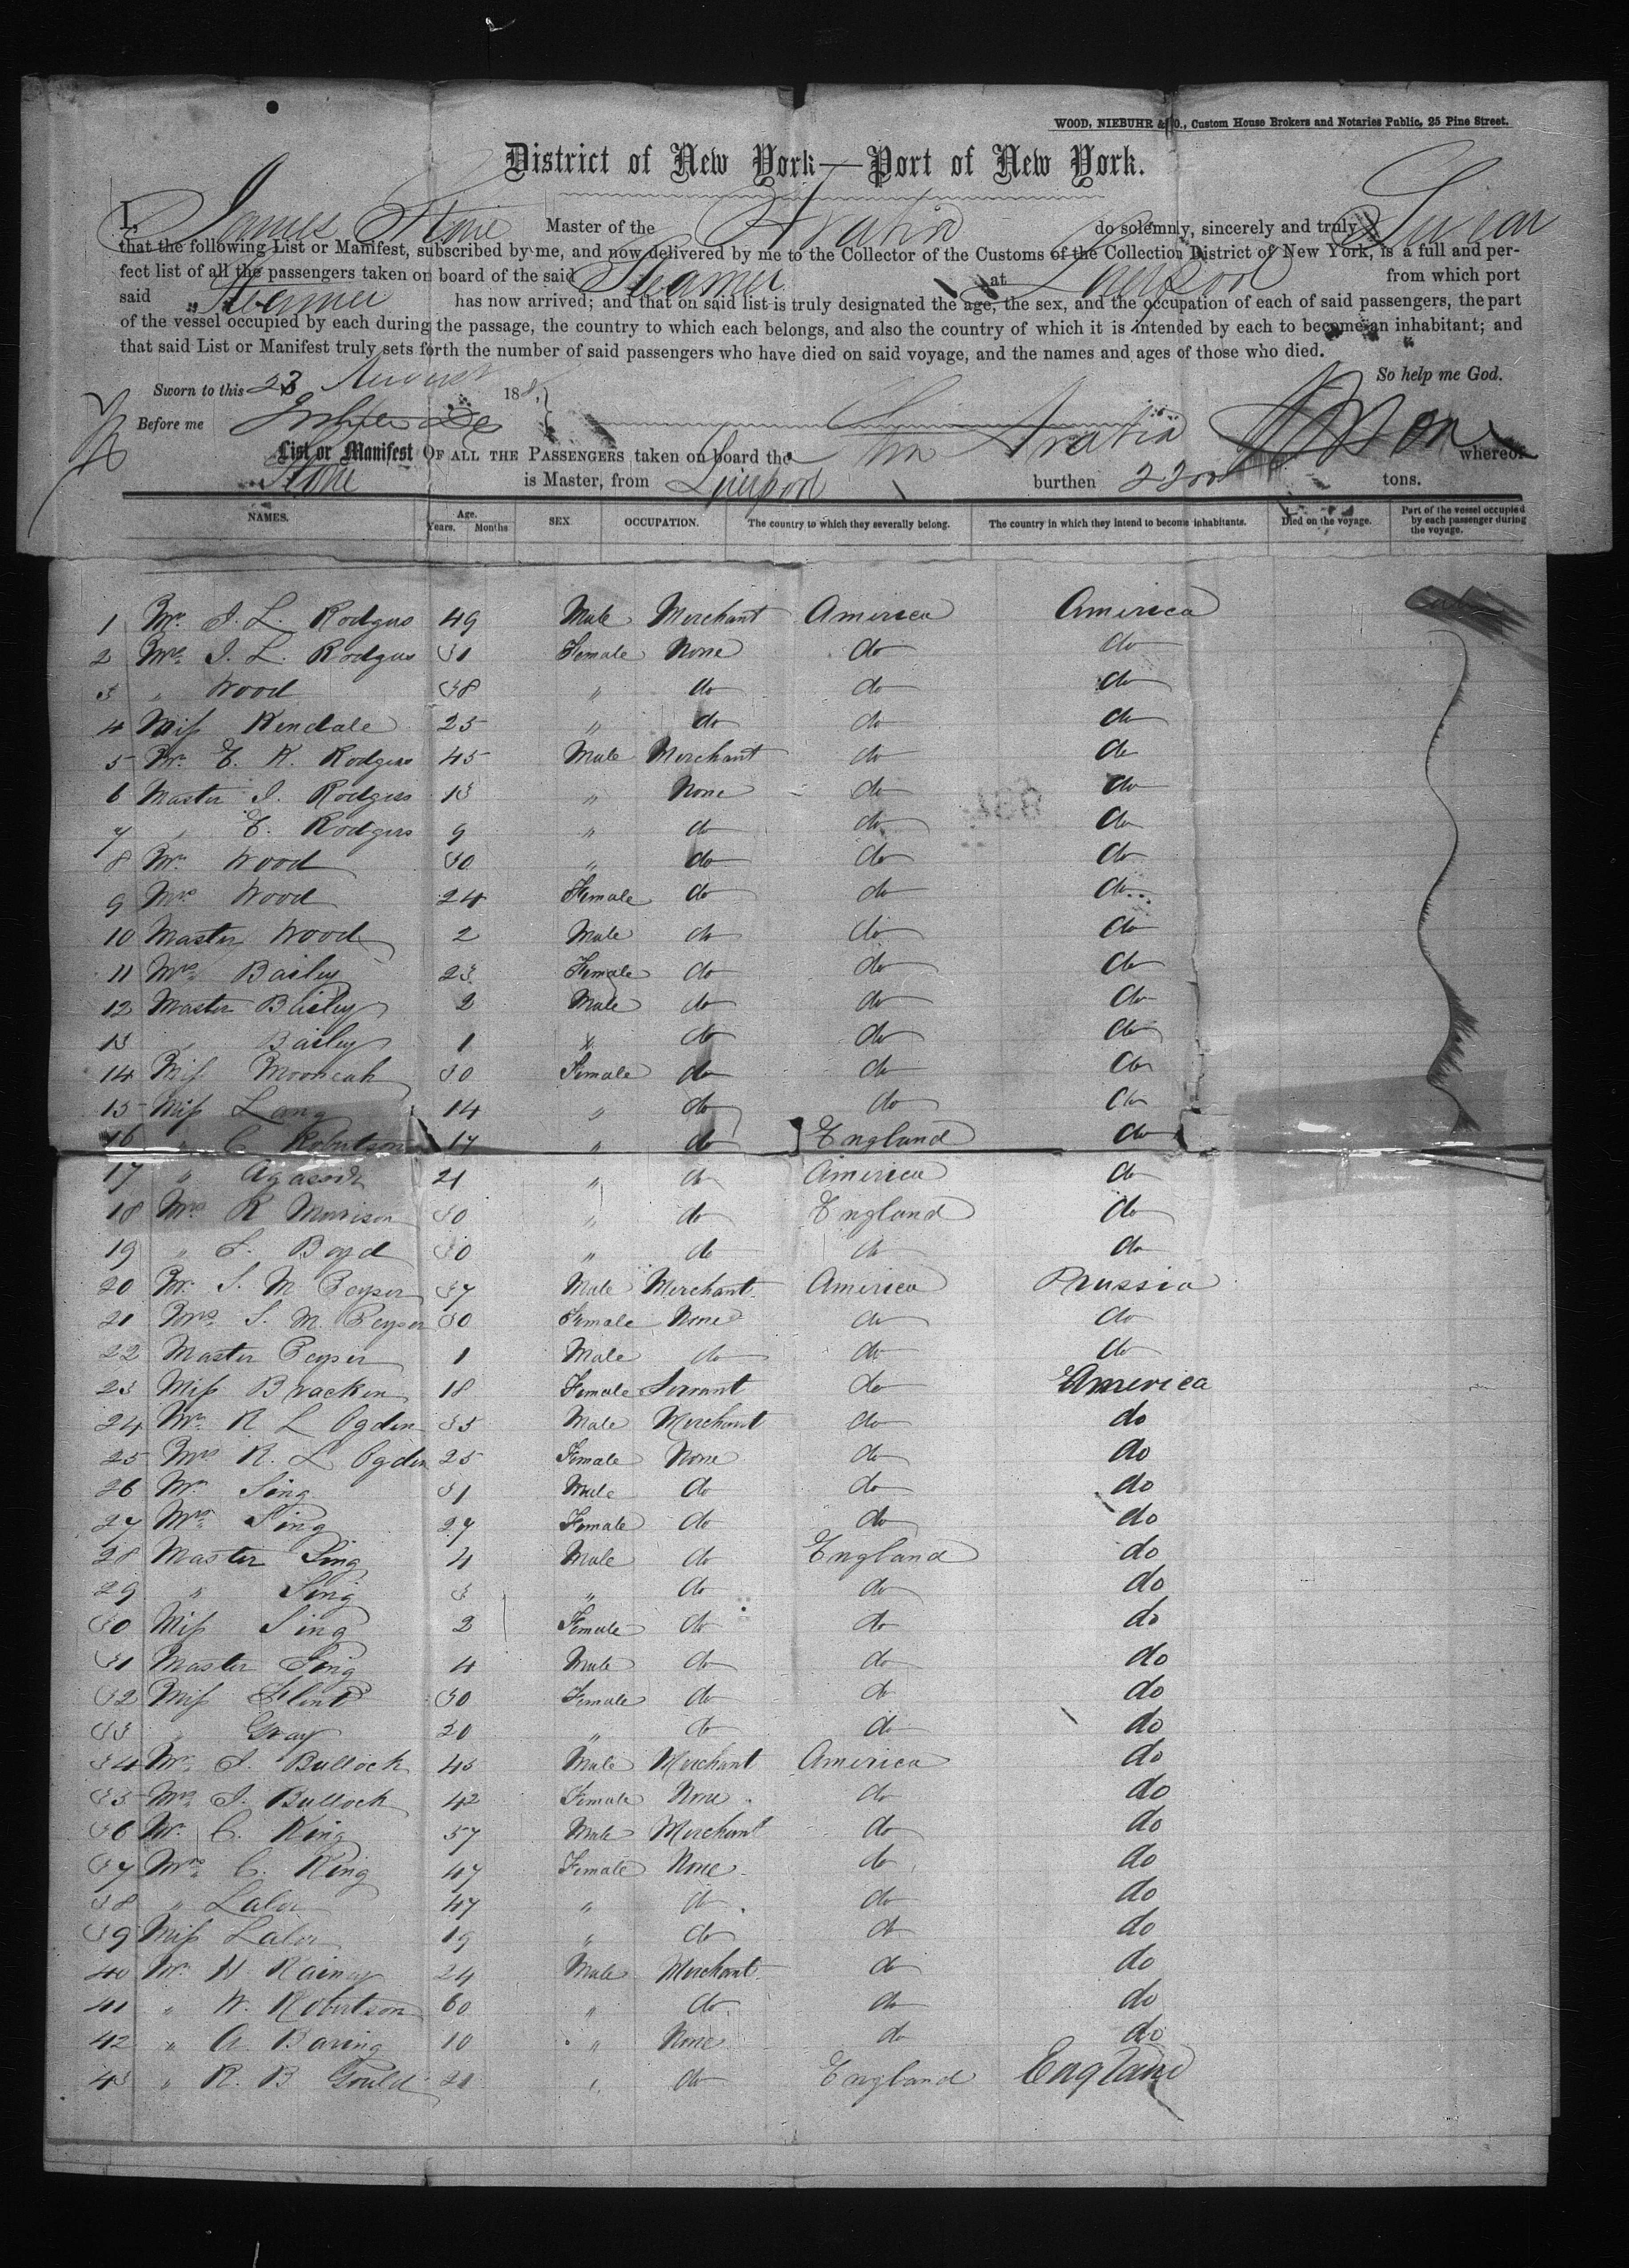 WOOD, NIEBUHR & CO., Custom House Brokers and Notaries Public, 25 Pine Street.
District of New York—Port of New York.
I, James Stone Master of the Arabia do solemnly, sincerely and truly Swear
that the following List or Manifest, subscribed by me, and now delivered by me to the Collector of the Customs of the Collection District of New York, is a full and per-
fect list of all the passengers taken on board of the said Steamer at Liverpool from which port
said Steamer has now arrived; and that on said list is truly designated the age, the sex, and the occupation of each of said passengers, the part
of the vessel occupied by each during the passage, the country to which each belongs, and also the country of which it is intended by each to become an inhabitant; and
that said List or Manifest truly sets forth the number of said passengers who have died on said voyage, and the names and ages of those who died.
So help me God.
Sworn to this 23 August 18
Before me
List or Manifest OF ALL THE PASSENGERS taken on board the Arabia whereof
Stone is Master, from Liverpool burthen 2200 tons.
NAMES. Age. Years. Months SEX OCCUPATION. The country to which they severally belong. The country in which they intend to become inhabitants. Died on the voyage. Part of the vessel occupied by each passenger during the voyage.
1 Mr. J. L. Rodgers 49 Male Merchant America America
2 Mrs. J. L. Rodgers 31 Female None do do
3 " Wood 38 " do do do
4 Miss Kendale 25 " do do do
5 Mr. E. K. Rodgers 45 Male Merchant do do
6 Master J. Rodgers 13 " None do do
7 " E. Rodgers 9 " do do do
8 Mr. Wood 30 " do do do
9 Mrs Wood 24 Female do do do
10 Master Wood 2 Male do do do
11 Mrs. Bailey 23 Female do do do
12 Master Bailey 2 Male do do do
13 " Bailey 1 " do do do
14 Miss Mooncah 30 Female do do do
15 Miss Lang 14 " do do do
16 " C. Robertson 17 " do England do
17 " Agassiz 21 " do America do
18 Mrs R Morrison 30 " do England do
19 " S. Boyd 30 " do do do
20 Mr. S. M. Peyser 37 Male Merchant America Prussia
21 Mrs. S. M. Peyser 30 Female None do do
22 Master Peyser 1 Male do do do
23 Miss Bracken 18 Female Servant do America
24 Mr. R L Ogden 35 Male Merchant do do
25 Mrs R. L Ogden 25 Female None do do
26 Mr. Sing 31 Male do do do
27 Mrs. Sing 27 Female do do do
28 Master Sing 4 Male do England do
29 " Sing 3 " do do do
30 Miss Sing 2 Female do do do
31 Master Sing 4 Male do do do
32 Miss Flint 30 Female do do do
33 " Gray 20 " do do do
34 Mr. J. Bullock 45 Male Merchant America do
35 Mrs. J. Bullock 42 Female None do do
36 Mr. C. King 57 Male Merchant do do
37 Mrs. C. King 47 Female None do do
38 " Lalor 47 " do do do
39 Miss Lalor 19 " do do do
40 Mr. H Rainey 24 Male Merchant do do
41 " W. Robertson 60 " do do do
42 " A. Baring 10 " None do do
43 " R. B Gould 21 " do England England